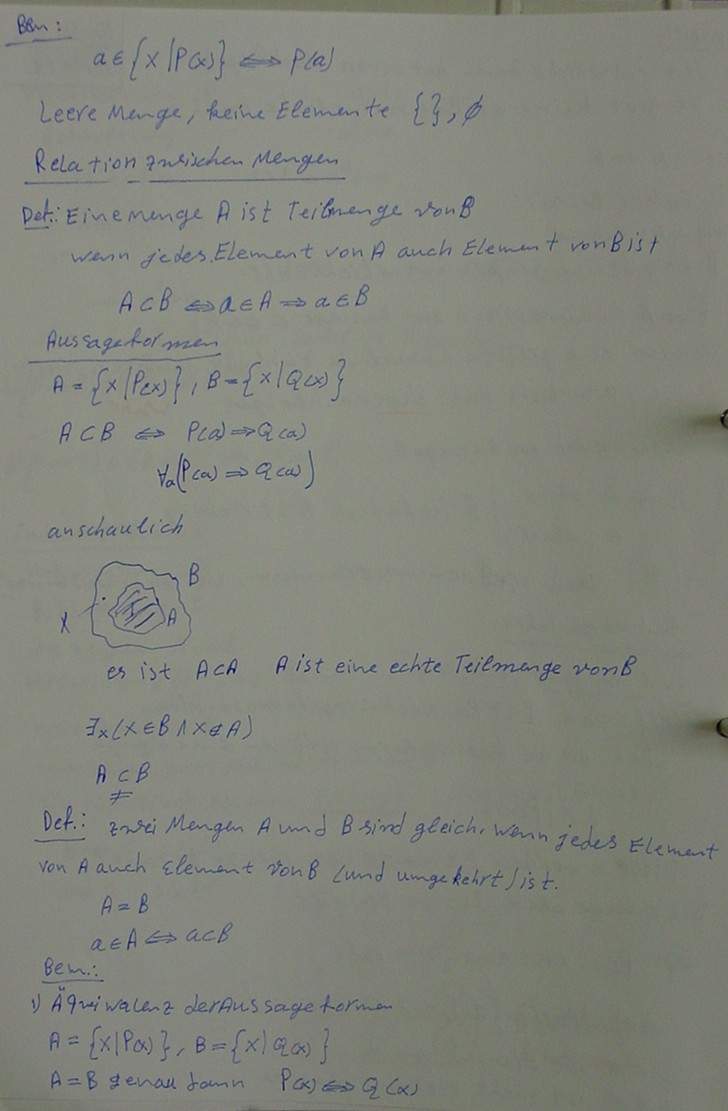 Bem:
a ∈ {x | P(x)} ⟺ P(a)
Leere Menge, keine Elemente { }, ∅
Relation zwischen Mengen
Def.: Eine Menge A ist Teilmenge von B
wenn jedes Element von A auch Element von B ist
A ⊂ B ⟺ a ∈ A ⟹ a ∈ B
Aussageformen
A = {x | P(x)}, B = {x | Q(x)}
A ⊂ B ⟺ P(a) ⟹ Q(a)
∀a (P(a) ⟹ Q(a))
anschaulich
B
X A
es ist A ⊂ A A ist eine echte Teilmenge von B
∃x (x ∈ B ∧ x ∉ A)
A ⊊ B
Def.: zwei Mengen A und B sind gleich, wenn jedes Element
von A auch Element von B (und umgekehrt) ist.
A = B
a ∈ A ⟺ a ⊂ B
Bem.:
1) Äquiwalenz der Aussageformen
A = {x | P(x)}, B = {x | Q(x)}
A = B genau dann P(x) ⟺ Q(x)